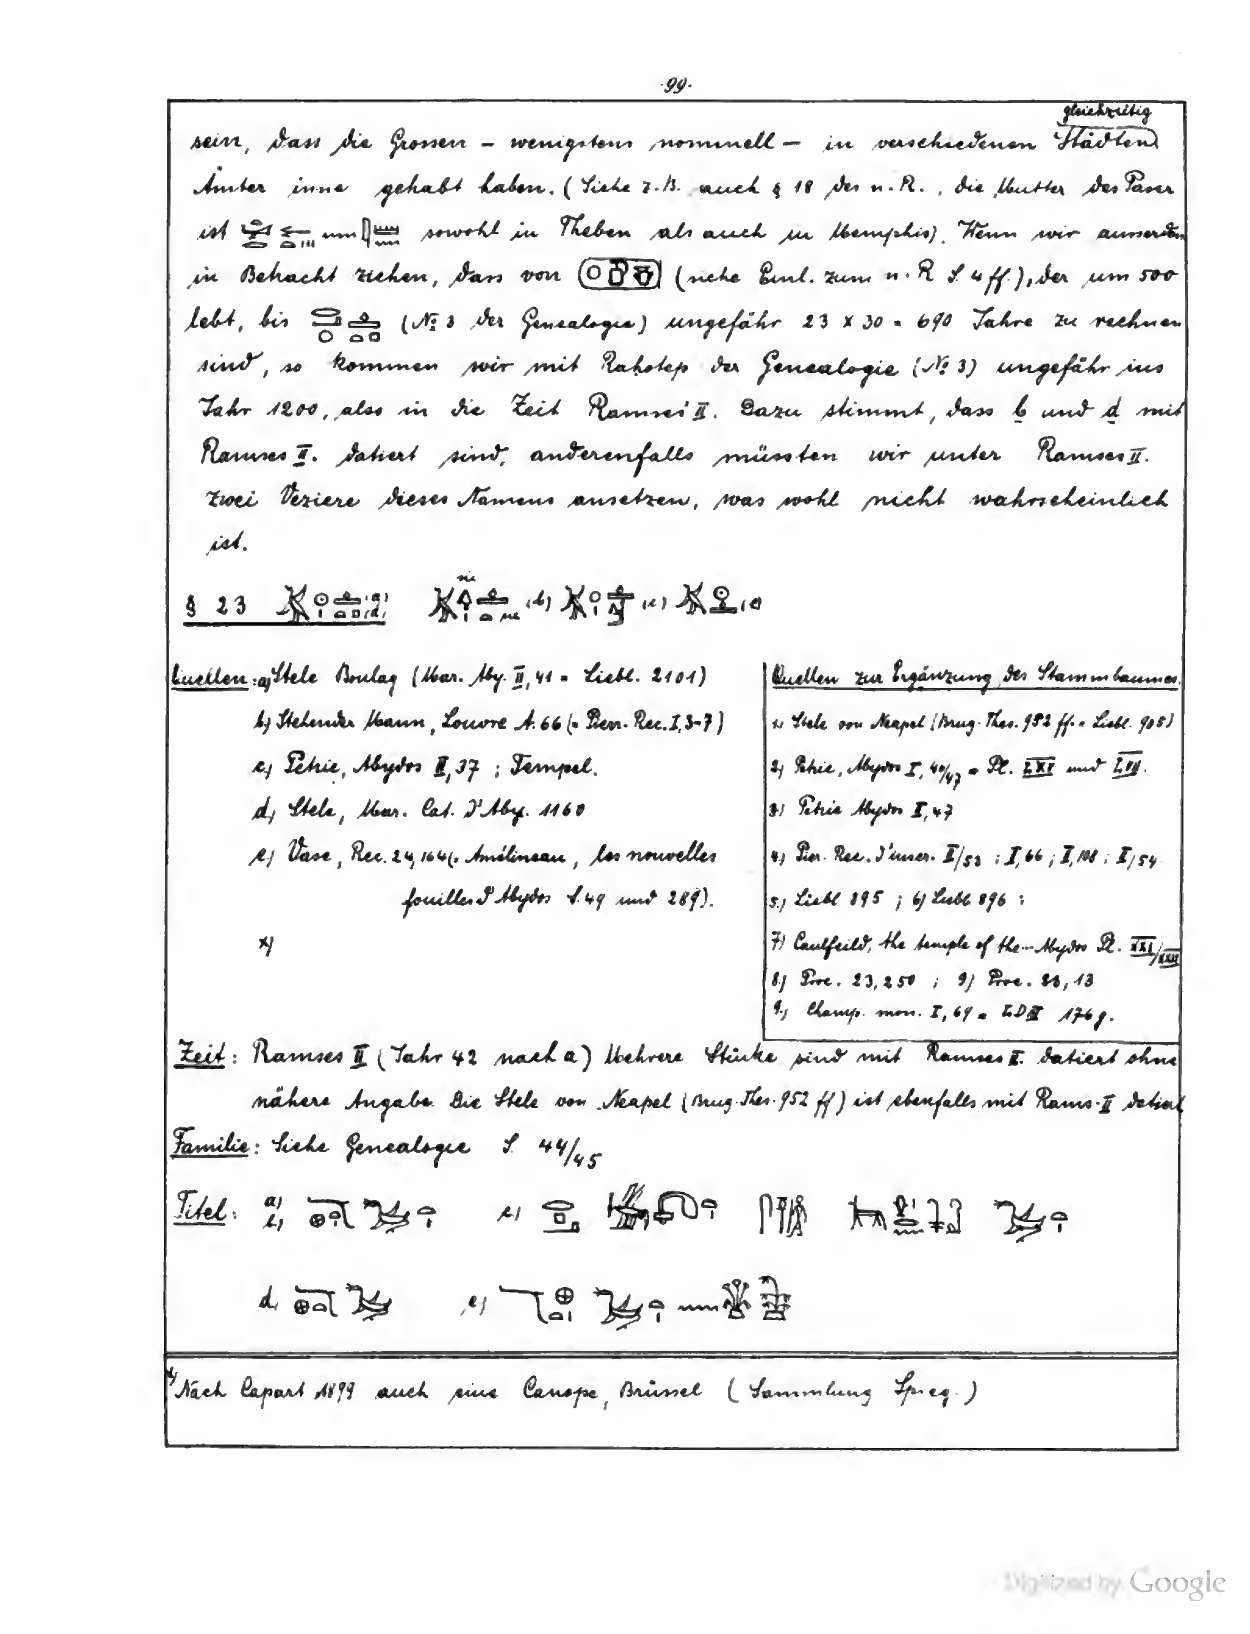 ·99·
gleichzeitig
sein, dass die Grossen – wenigstens nominell – in verschiedenen Städten
Ämter inne gehabt haben. (Siehe z.B. auch § 18 des n.R., die Mutter des Paser
ist sowohl in Theben als auch in Memphis). Wenn wir ausserdem
in Betracht ziehen, dass von (siehe Einl. zum n.R S. 4 ff.), der um 500
lebt, bis (№ 3 der Genealogie) ungefähr 23 x 30 = 690 Jahre zu rechnen
sind, so kommen wir mit Rahotep der Genealogie (№ 3) ungefähr ins
Jahr 1200, also in die Zeit Ramses' II. Dazu stimmt, dass b und d mit
Ramses II. datiert sind, anderenfalls müssten wir unter Ramses II.
zwei Veziere dieses Namens ansetzen, was wohl nicht wahrscheinlich
ist.
§ 23 (a) (d) (b) (c) (e)
Quellen: a) Stele Boulaq (Mar. Aby. II, 41 = Liebl. 2101)
b) Stehender Mann, Louvre A. 66 (= Pierr. Rec. I, 3-7)
c) Petrie, Abydos II, 37 ; Tempel.
d) Stele, Mar. Cat. d'Aby. 1160
e) Vase, Rec. 24, 164 (= Amélineau, les nouvelles
fouilles d'Abydos S. 49 und 289).
x)
Quellen zur Ergänzung des Stammbaumes.
1) Stele von Neapel (Brug. Thes. 952 ff. = Liebl. 905)
2) Petrie, Abydos I, 40/47 = Pl. LXI und
3) Petrie Abydos I, 47
4) Pier. Rec. d'inscr. II/53 ; I, 66 ; I, 108 ; I/54
5) Liebl 895 ; 6) Liebl 896 ;
7) Caulfeild, the temple of the--Abydos Pl. XXI/XXII
8) Proc. 23, 250 ; 9) Proc. 13
9) Champ. mon. I, 69 = LD III 176 g.
Zeit: Ramses II (Jahr 42 nach a) Mehrere Stücke sind mit Ramses II. datiert ohne
nähere Angabe. Die Stele von Neapel (Brug. Thes. 952 ff) ist ebenfalls mit Rams. II datiert
Familie: Siehe Genealogie S. 44/45
Titel: a) c)
d) e)
x) Nach Capart 1899 auch eine Canope, Brüssel (Sammlung Spieg.)
Digitized by Google